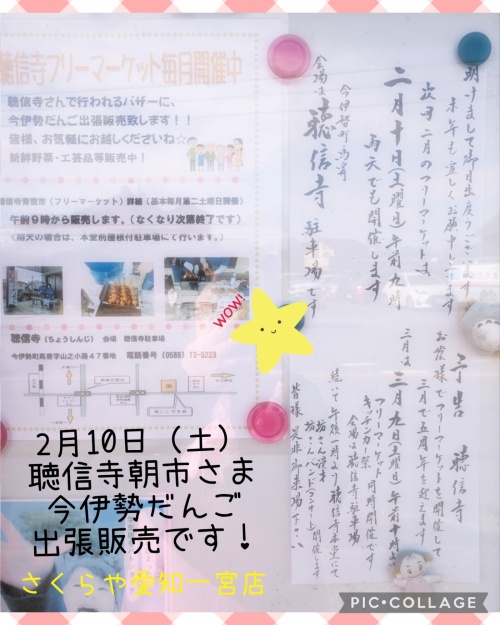 聴信寺フリーマーケット毎月開催中
聴信寺さんで行われるバザーに、
今伊勢だんご出張販売致します!!
皆様、お気軽にお越しくださいね☆
新鮮野菜・工芸品等販売中！
聴信寺青空市（フリーマーケット）詳細（基本毎月第二土曜日開催）
午前9時から販売します。（なくなり次第終了です）
（雨天の場合は、本堂前屋根付駐車場にて行います。）
聴信寺（ちょうしんじ） 会場 聴信寺駐車場
今伊勢町馬寄字山之小路47番地 電話番号（0586）73-5223
明けまして御目出度うございます
本年も宜しくお願い申し上げます
次回二月のフリーマーケットは
二月十日（土曜日）午前九時
雨天でも開催します
今伊勢町馬寄
会場は 聴信寺 駐車場です
WOW!
予告 聴信寺
お蔭様でフリーマーケットを開催して
三月で五周年を迎えます
三月は 三月九日（土曜日）午前十時
フリーマーケット
キッチンカー祭 同時開催です
会場は聴信寺駐車場
続いて午後一時より聴信寺本堂にて
坊さん漫才
坊さんバンド（コンサート）開催します
皆様是非御来場下さい
2月10日（土）
聴信寺朝市さま
今伊勢だんご
出張販売です！
さくらや愛知一宮店
PIC•COLLAGE